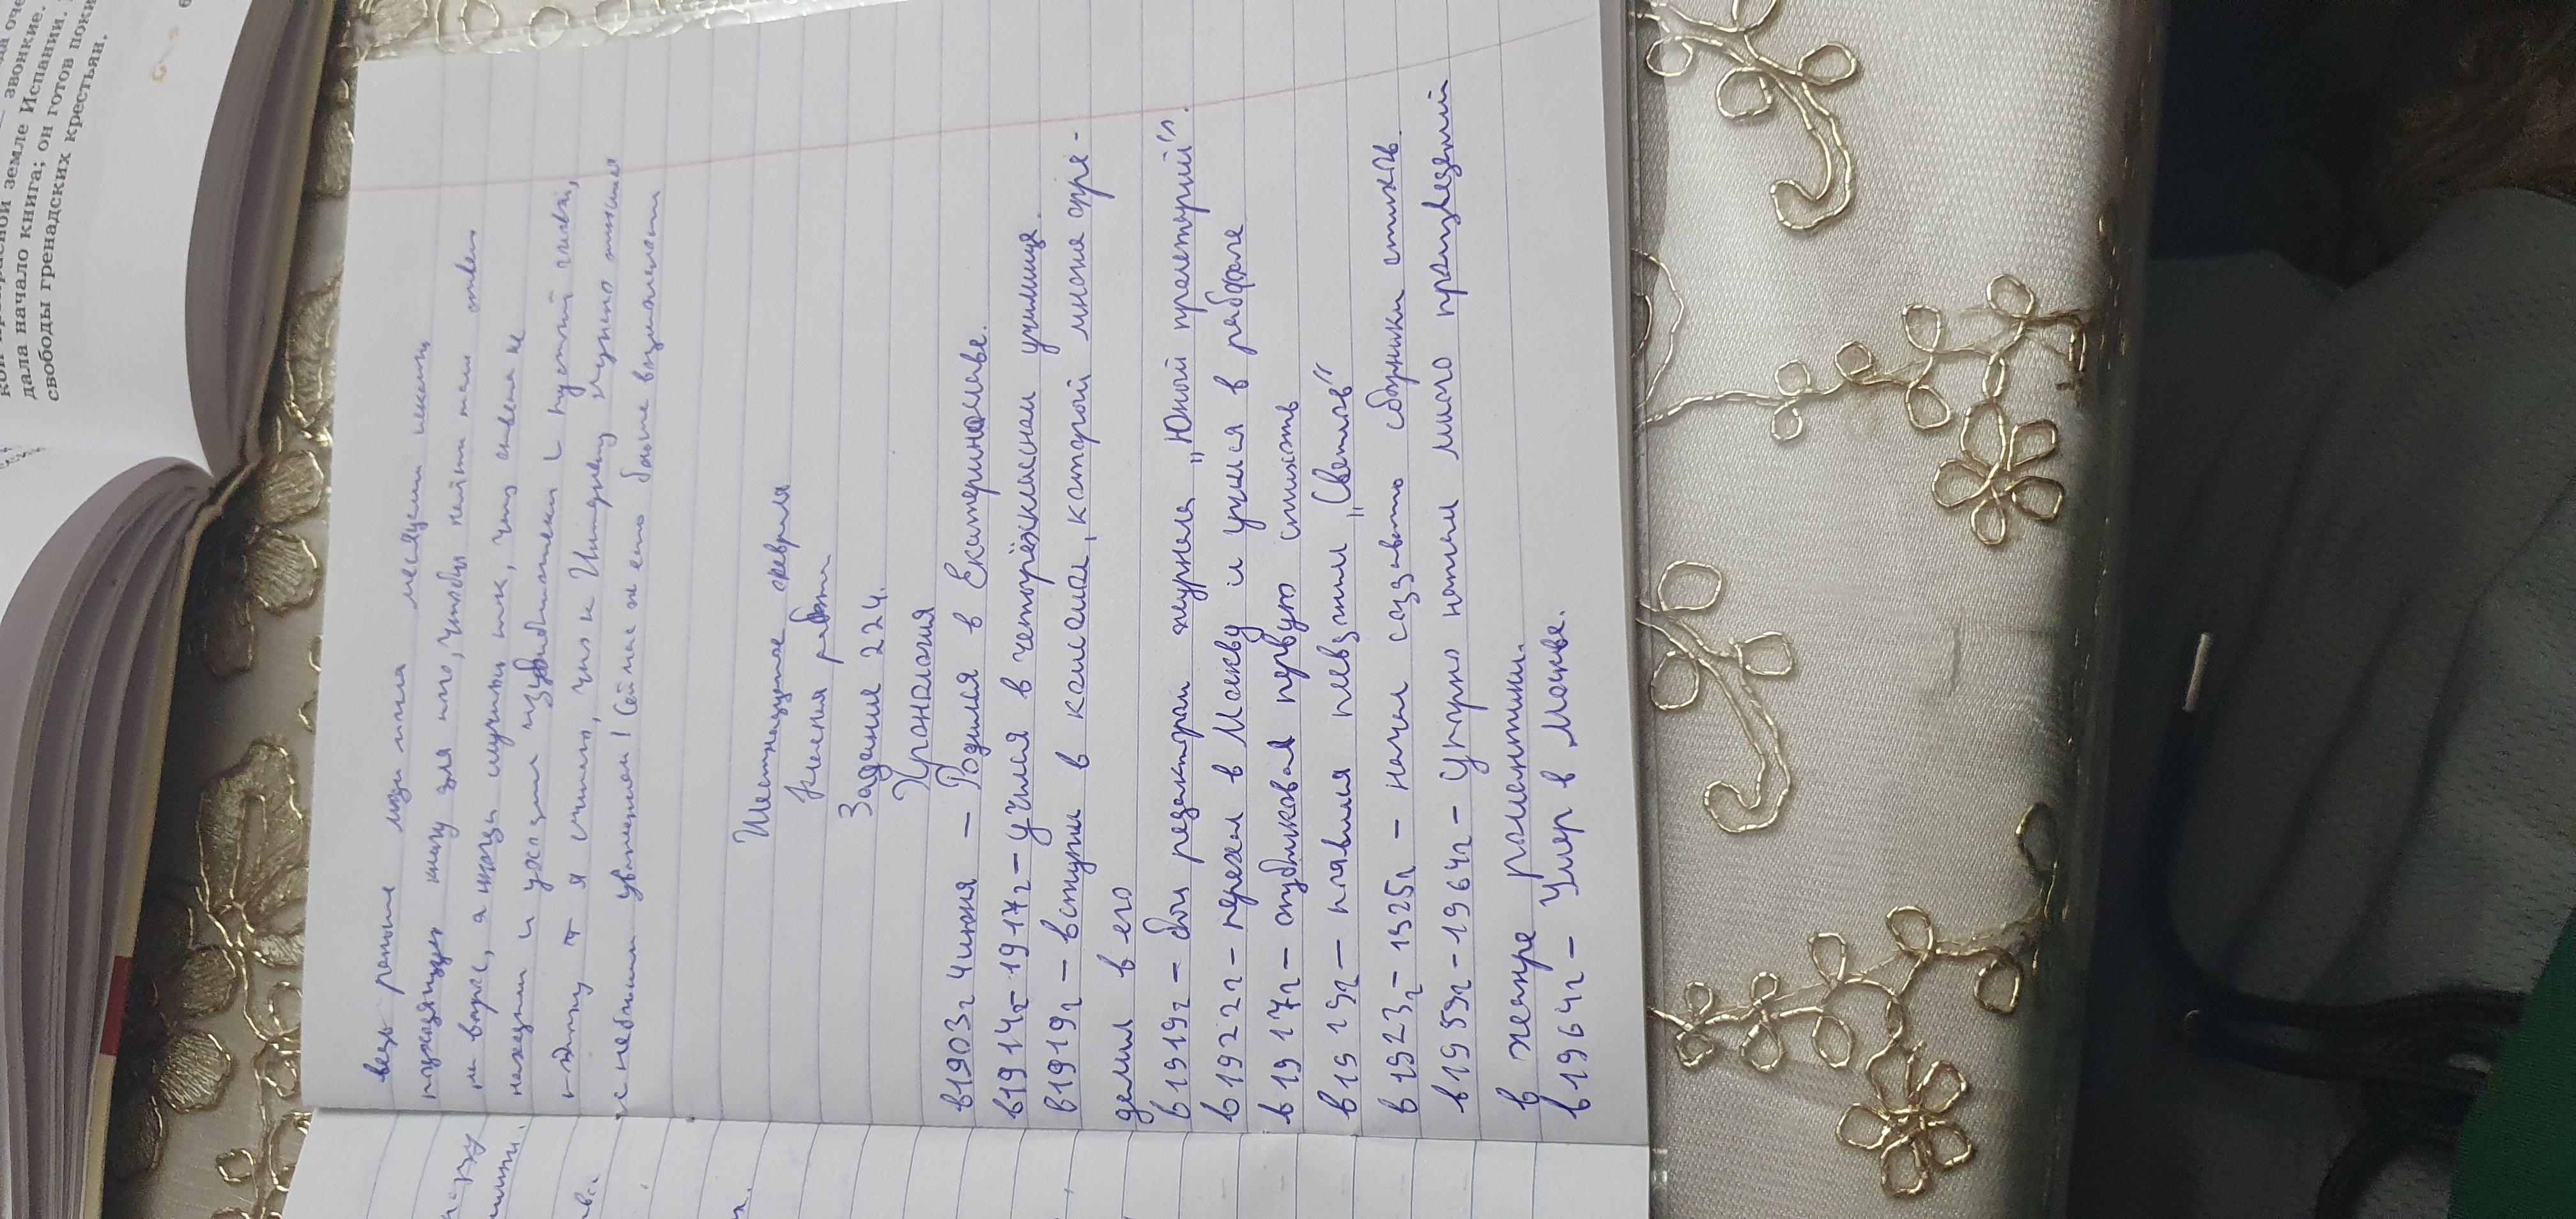 кой прекрасной земле
звонкие.
дала начало книга; он готов
земле Испании.
свободы гренадских крестьян.
вещь раньше люди месяцами искать
подходящую книгу для того, чтобы найти там ответ
на вопрос, а иногда случалось так, что ответа не
находили и уходили из библиотеки с пустой головой,
поэтому я считаю, что к Интернету нужно относится
с небольшим уважением! Сейчас же есть больше возможностей
Шестнадцатое февраля
Классная работа
Задание 224.
Хронология
в1903г 4 июня – Родился в Екатеринославе.
в1914г-1917г – учился в четырёхклассном училище.
в1919г – вступил в комсомол, который много опре-
делил в его
в1919г – был редактором журнала „Юный пролетарий".
в1922г – переехал в Москву и учился в рабфаке
в1917г – опубликовал первую
в1919г – появился псевдоним „Светлов"
в1923г – 1925г – начал создавать сборники стихов.
в1959г – 1964г – Упорно написал много произведений
в жанре романтики.
в1964г – Умер в Москве.